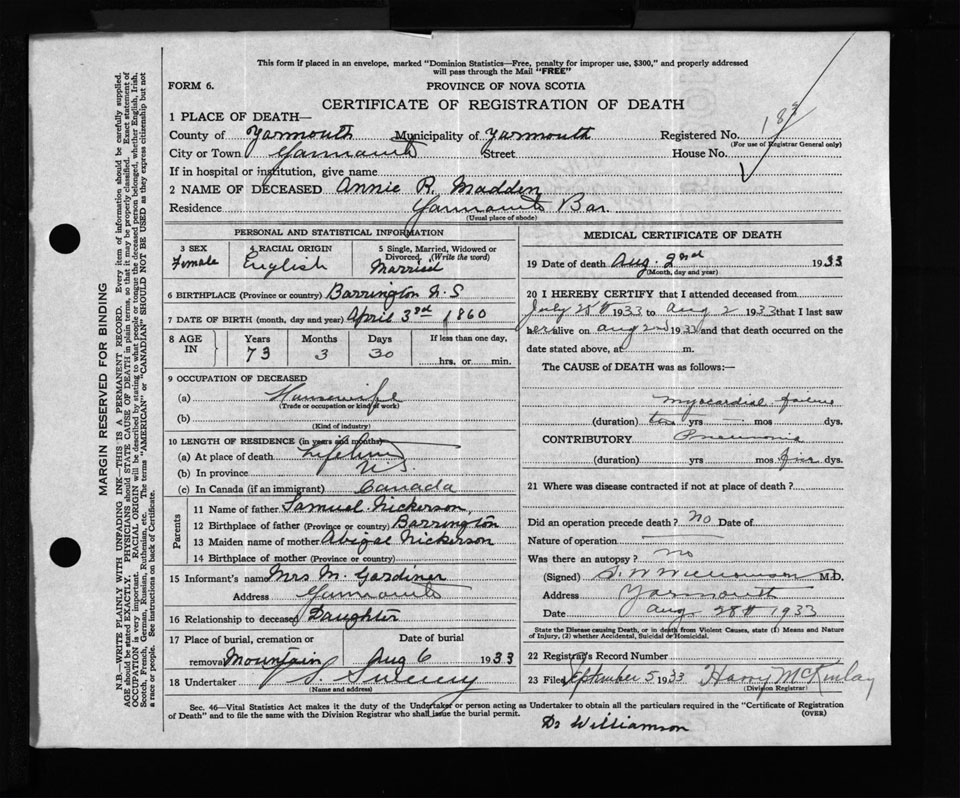 This form if placed in an envelope, marked "Dominion Statistics—Free, penalty for improper use, $300," and properly addressed
will pass through the Mail "FREE"
FORM 6.
PROVINCE OF NOVA SCOTIA
CERTIFICATE OF REGISTRATION OF DEATH
1 PLACE OF DEATH—
County of Yarmouth Municipality of Yarmouth Registered No.
(For use of Registrar General only)
City or Town Yarmouth Street House No.
If in hospital or institution, give name
2 NAME OF DECEASED Annie R. Madden
Residence Yarmouth Bar.
(Usual place of abode)
PERSONAL AND STATISTICAL INFORMATION
3 SEX Female
4 RACIAL ORIGIN English
5 Single, Married, Widowed or
Divorced. (Write the word)
Married
6 BIRTHPLACE (Province or country) Barrington N.S
7 DATE OF BIRTH (month, day and year) April 3rd 1860
8 AGE IN
Years Months Days If less than one day,
73 3 30 hrs. or min.
9 OCCUPATION OF DECEASED
(a) Housewife
(Trade or occupation or kind of work)
(b)
(Kind of industry)
10 LENGTH OF RESIDENCE (in years and months)
(a) At place of death Lifetime
(b) In province N.S.
(c) In Canada (if an immigrant) Canada
Parents
11 Name of father Samuel Nickerson
12 Birthplace of father (Province or country) Barrington
13 Maiden name of mother Abigal Nickerson
14 Birthplace of mother (Province or country)
15 Informant's name Mrs M. Gardiner
Address Yarmouth
16 Relationship to deceased Daughter
17 Place of burial, cremation or Date of burial
removal Mountain Aug 6 1933
18 Undertaker Sweeny
(Name and address)
MEDICAL CERTIFICATE OF DEATH
19 Date of death Aug. 2nd 1933
(Month, day and year)
20 I HEREBY CERTIFY that I attended deceased from
July 25th 1933 to Aug 2 1933 that I last saw
her alive on Aug 2nd 1933 and that death occurred on the
date stated above, at m.
The CAUSE OF DEATH was as follows:—
Myocardial failure
(duration) ten yrs mos dys.
CONTRIBUTORY Pneumonia
(duration) yrs mos five dys.
21 Where was disease contracted if not at place of death?
Did an operation precede death? No Date of
Nature of operation
Was there an autopsy? no
(Signed) S. W. Williamson M.D.
Address Yarmouth
Date Aug 28th 1933
State the Disease causing Death, or in death from Violent Causes, state (1) Means and Nature
of Injury, (2) whether Accidental, Suicidal or Homicidal.
22 Registrar's Record Number
23 Filed September 5 1933 Harry McKinlay
(Division Registrar)
Sec. 46—Vital Statistics Act makes it the duty of the Undertaker or person acting as Undertaker to obtain all the particulars required in the "Certificate of Registration
of Death" and to file the same with the Division Registrar who shall issue the burial permit.
(OVER)
Dr Williamson
MARGIN RESERVED FOR BINDING
N.B.—WRITE PLAINLY WITH UNFADING INK—THIS IS A PERMANENT RECORD. Every item of information should be carefully supplied.
AGE should be stated EXACTLY. PHYSICIANS should STATE CAUSE OF DEATH in plain terms, so that it may be properly classified. Exact statement of
OCCUPATION is very important. RACIAL ORIGIN will be described by stating to what people or tongue the deceased person belonged, whether English, Irish,
Scotch, French, German, Russian, Ruthenian, etc. The terms "AMERICAN" or "CANADIAN" SHOULD NOT BE USED as they express citizenship but not
a race or people. See instructions on back of Certificate.